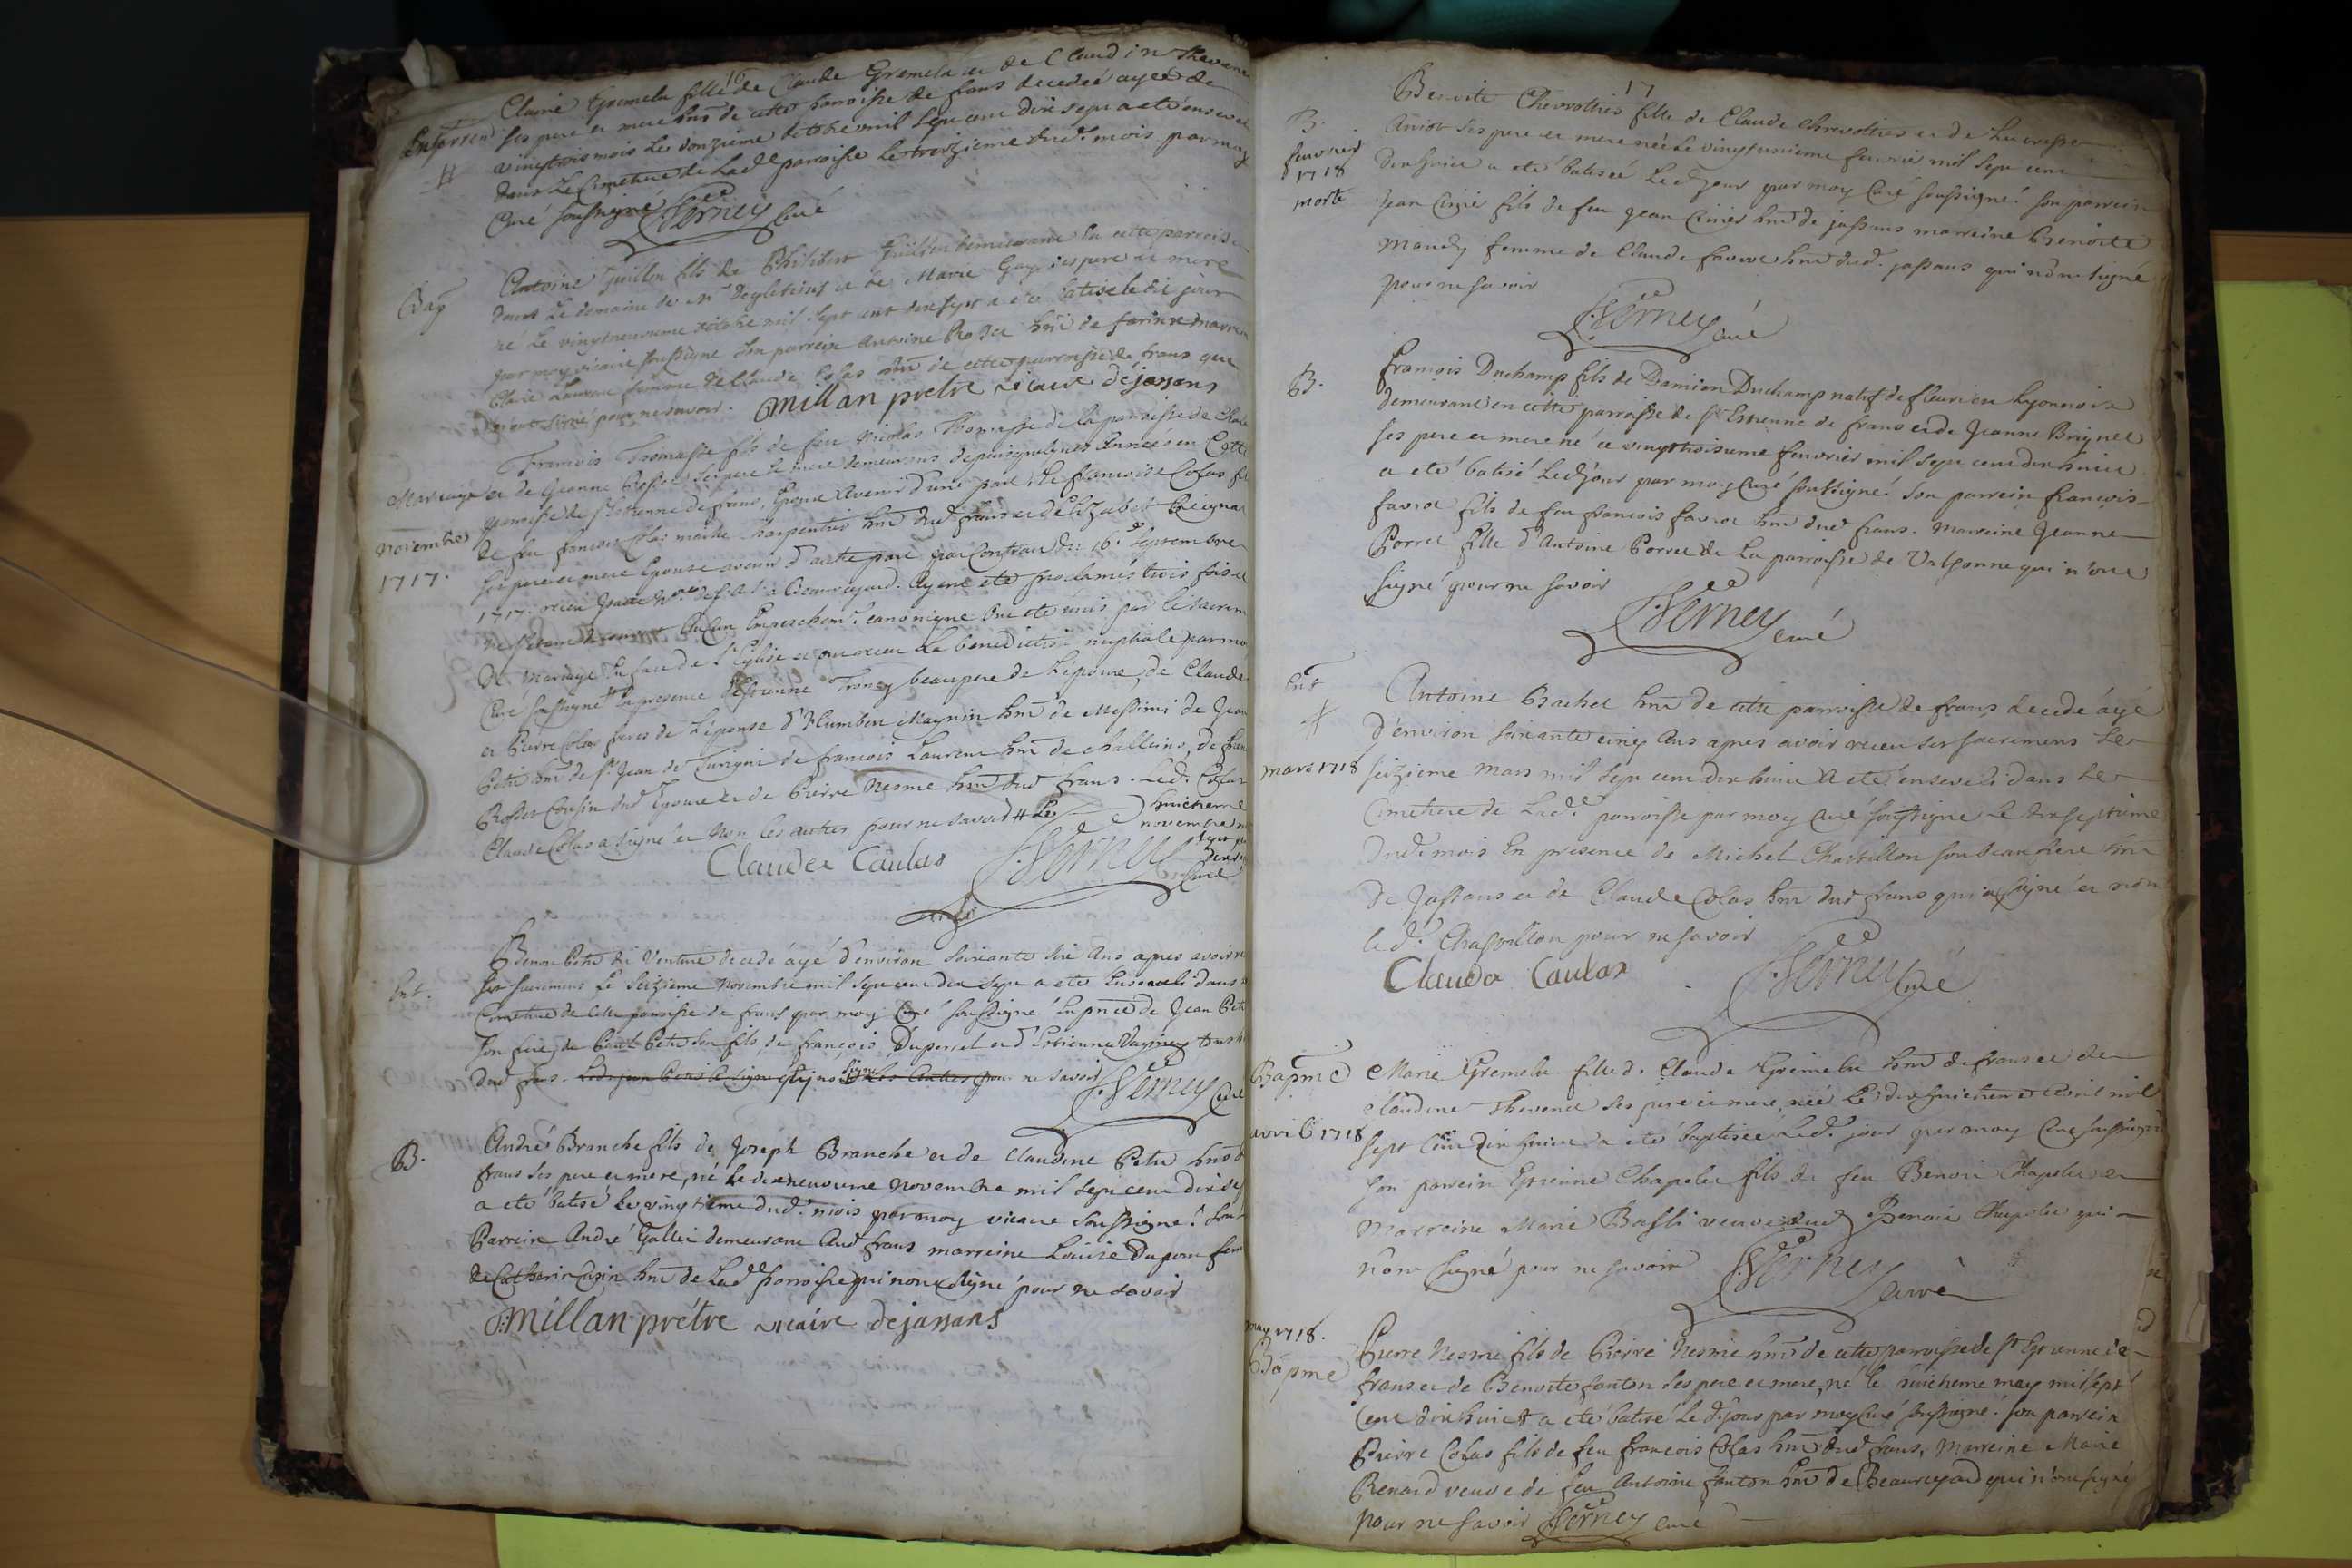 16
Claire Gremela fille de Claude Gremela et de Claudine Thevenet
Enterrem ses pere et mere hns de cette parroisse de frans decedeé ageé de
# vingt trois mois Le onzieme octobre mil sept cent dix sept a eté enseveli
dans Le Cimetiere de Lade parroisse Le treizieme dud. mois par moy
Curé soussigné Verney Curé
Bap
Antoine Guillon fils de Philibert Guillon demeurant en cette parroisse
dans Le domaine de Mr et de Marie Gay ses pere et mere
né Le vingtneuvieme octobre mil sept cent dix sept a eté batisé le dit jour
par moy vicaire soussigné son parrein Antoine Rosset hn de marreine
Claire Laurent femme de Claude Colas hn de cette parroisse de frans qui
n'ont signé pour ne savoir. Millan prêtre vicaire dejassans
Mariage
novembre
1717.
Francois Thomasse fils de feu Nicolas Thomasse de la parroisse de
et de Jeanne Rosset ses pere et mere demeurans depuis quelques Années en Cette
parroisse de st Estienne de frans, Epoux Avenir d'une part et francoise Colas fille
de feu francois Colas maitre charpentier hn dud frans et de Elizabet
ses pere et mere Epouse avenir d'autre part par Contract du 16e Septembre
1717. receu à Beauregard. Ayent eté proclamés trois fois et
ne s'étant decouvert Aucun Empeschemt canonique Ont eté unis par le sacrem
de Mariage En face de L'Eglise et ont receu La benediction nuptiale par moy
Curé soussigné # En presence d'Estienne Troncy beaupere de L'époux, de Claude
et Pierre Colas freres de L'épouse d'Humbert Maynin hn de Messimi de Jean
Petit hn de st Jean de Turigni de francois Laurent hn de challeins, de
Rosset Cousin dud Epoux et de Pierre Nesme hn dud frans. Led. Colas
Claude Colas a signé et Non les autres pour ne savoir # Le huitieme
novembre mil
sept cent
dix sept
Claude Caulas Verney Curé
Ent.
Benoit Petit de Venture decedé âgé d'environ soixante six Ans apres avoir receu
ses sacremens Le seizieme Novembre mil sept cent dix sept a eté Enseveli dans le
Cimetiere de Cette parroisse de frans par moy Curé soussigné En pnce de Jean Petit
son frere, de Petit son fils, de françois Duperret et d'Estienne tous hn
dud frans. Led jean Petit a signé et non Les Autres pour ne savoir Verney Curé
B.
André Branche fils de Joseph Branche et de Claudine Petit hns de
frans ses pere et mere, né Le dixneuvieme Novembre mil sept cent dix sept
a eté batisé Le vingtieme dud. mois par moy vicaire soussigné. Son
Parrein André Gallet demeurant Aud frans marreine Louise Dupont femme
de Catherin hn de Lade Parroisse qui n'ont signé pour ne savoir
Millan prêtre vicaire dejassans
17
B.
fevrier
1718
morte
Benoite Chevrotties fille de Claude Chevrotties et de
ses pere et mere née Le vingtunieme fevrier mil sept cent
dix huict a eté batiseé Led jour par moy Curé soussigné. Son parrein
Jean Cimer fils de feu Jean Cimer hn de jassans marreine Benoite
femme de Claude favre hn dud. jassans qui n'ont signé
pour ne savoir
Verney curé
B.
François Duchamp fils de Damien Duchamp natif de fleurieu Lyonnois
demeurant en cette parroisse de st Estienne de frans et de Jeanne Briquet
ses pere et mere né ce vingttroisieme fevrier mil sept cent dix huict
a eté batisé Led jour par moy Curé soussigné. Son parrein françois
favrot fils de feu françois favrot hn dud frans. Marreine Jeanne
Porret fille d'Antoine Porret de La parroisse de Valsonne qui n'ont
signé pour ne savoir
Verney curé
Ent
#
mars 1718
Antoine Bachet hn de cette parroisse de frans decedé âgé
d'environ soixante cinq Ans apres avoir receu ses sacremens Le
seizieme Mars mil sept cent dix huict a eté enseveli dans Le
Cimetiere de Lade. parroisse par moy Curé soussigné Le dix septieme
dud. mois En presence de Michel Chassillon son beau frere hn
de Jassans et de Claude Colas hn dud frans qui a signé et non
led. Chassillon pour ne savoir
Claude Caulas Verney Curé
Bapme
avril 1718
Marie Gremela fille de Claude Gremela hn de frans et de
Claudine Thevenet ses pere et mere, née Le dix huictieme Avril mil
sept Cent dix huict a eté baptisée Led. jour par moy Curé soussigné
Son parrein Estienne Chapolet fils de feu Benoit Chapolet et
Marreine Marie Bassi veuve dud Benoit Chapolet qui
n'ont signé pour ne savoir Verney Curé
may 1718.
Bapme
Pierre Nesme fils de Pierre Nesme hn de cette parroisse de st Estienne de
frans et de Benoite fanton ses pere et mere, né le huictieme may mil sept
Cent dix huict a eté batisé Le d jour par moy Curé soussigné. Son parrein
Pierre Colas fils de feu francois Colas hn dud frans, Marreine Marie
Renard veuve de feu Antoine fanton hn de Beauregard qui n'ont signé
pour ne savoir Verney Curé